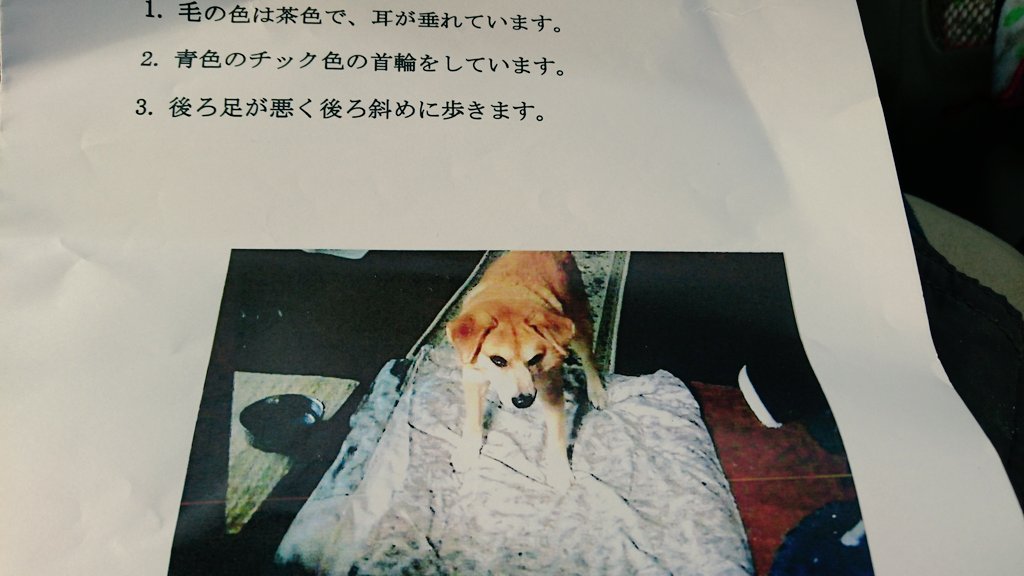 1. 毛の色は茶色で、耳が垂れています。
2. 青色のチック色の首輪をしています。
3. 後ろ足が悪く後ろ斜めに歩きます。